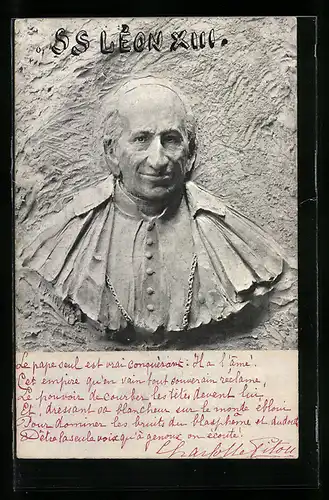 SS LÉON XIII.
Le pape seul est vrai conquérant: Il a l'âme!
Cet empire qu'en vain tout souverain réclame,
Le pouvoir de courber les têtes devant lui
Et, dressant sa blancheur sur le monde ébloui
Pour dominer les bruits du blasphème et du doute
D'être la seule voix qu'à genoux on écoute!
Charlotte